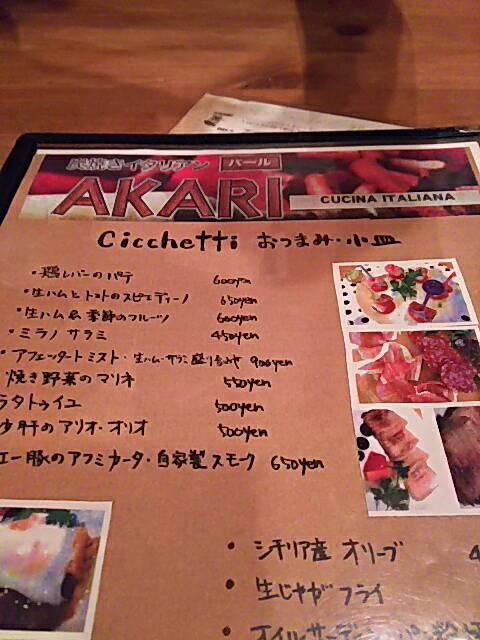 炭焼きイタリアン バール
AKARI
CUCINA ITALIANA
Cicchetti おつまみ・小皿
・鶏レバーのパテ 600yen
・生ハムとトマトのスピエディーノ 650yen
・生ハム&季節のフルーツ 600yen
・ミラノサラミ 450yen
・アフェッタートミスト・生ハム・サラミ盛り合わせ 900yen
焼き野菜のマリネ 550yen
ラタトゥイユ 500yen
砂肝のアリオ・オリオ 500yen
エー豚のアフミカータ・自家製スモーク 650yen
・シチリア産 オリーブ 4
・生じゃがフライ
・オイルサーディン